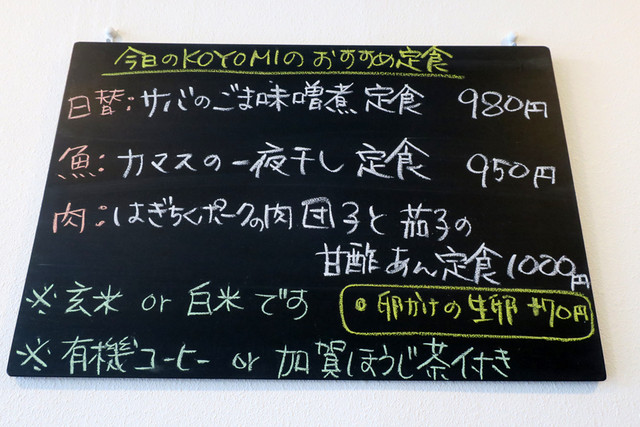 今日のKOYOMIのおすすめ定食
日替:サバのごま味噌煮定食 980円
魚:カマスの一夜干し定食 950円
肉:はぎちくポークの肉団子と茄子の
甘酢あん定食1000円
※玄米 or 白米です
。卵かけの生卵 +70円
※有機コーヒー or 加賀ほうじ茶付き